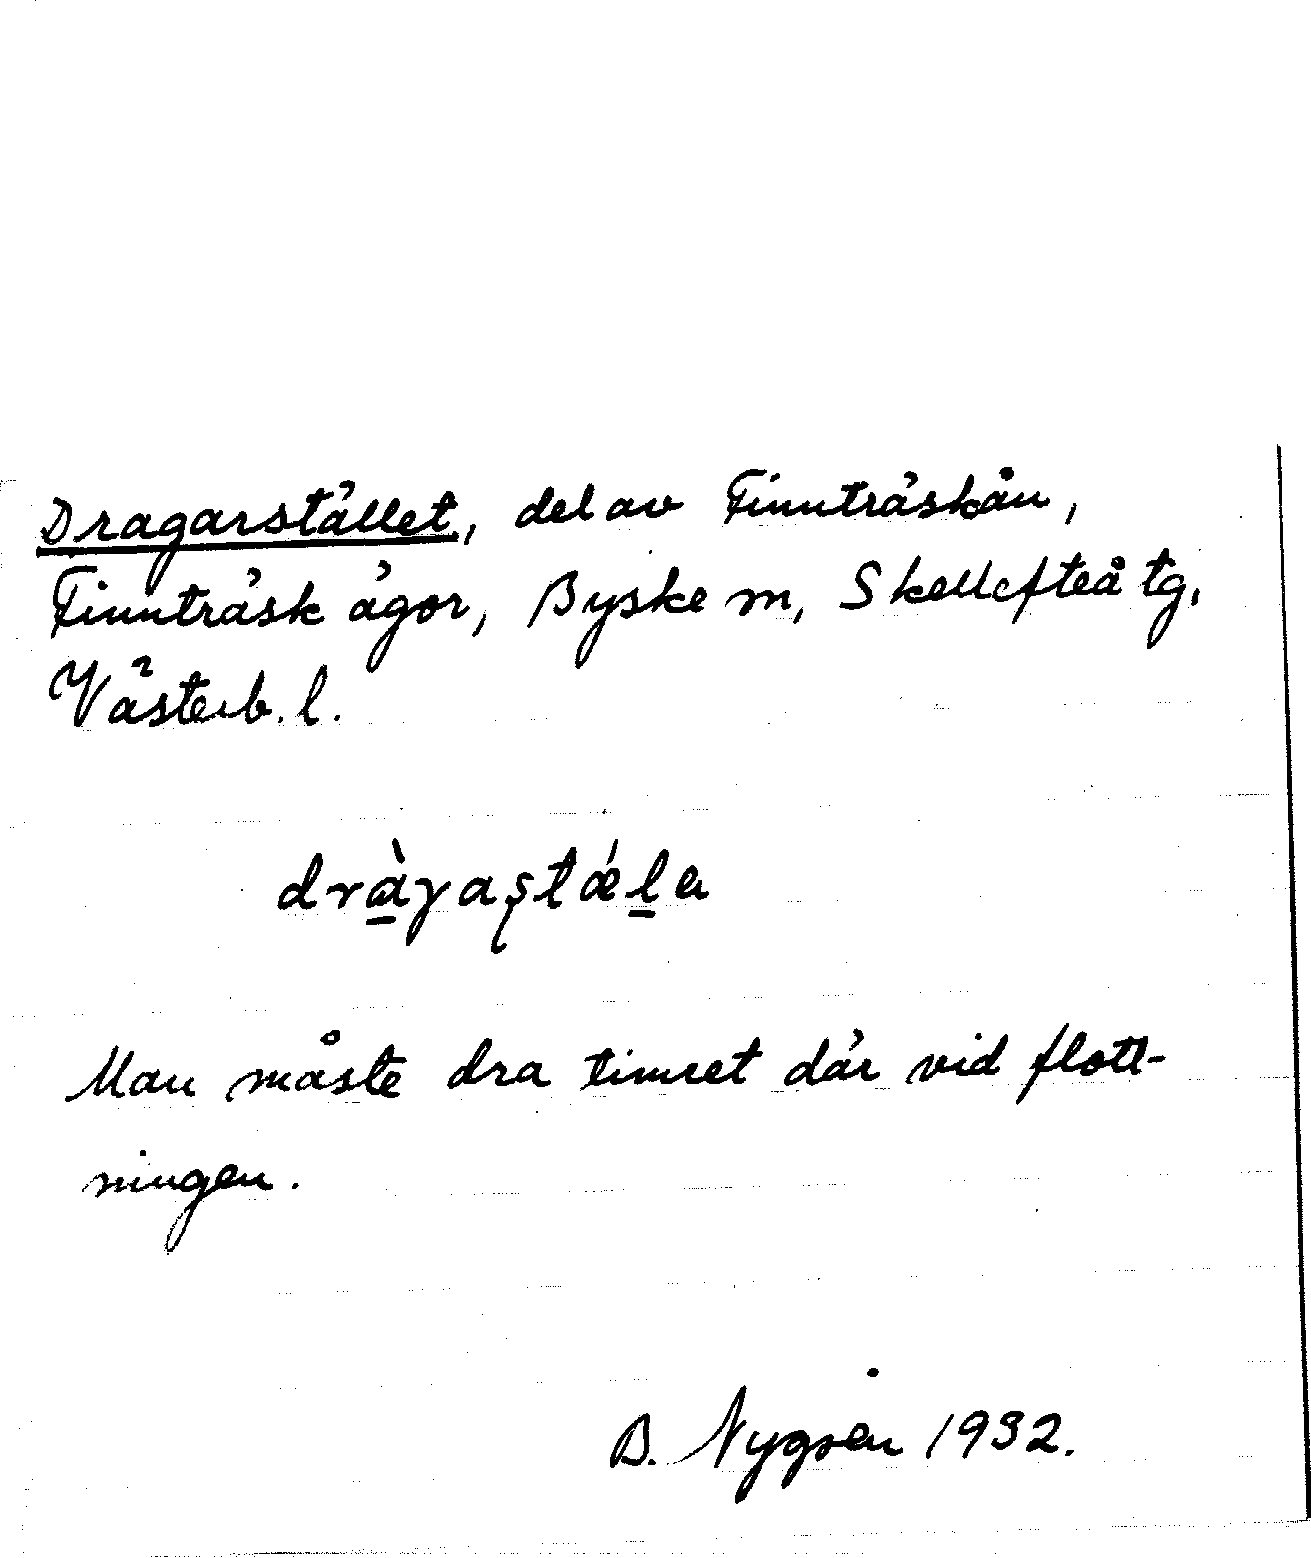 Dragarstället, del av Finnträskån,
Finnträsk ägor, Byske sn, Skellefteå tg,
Västerb. l.
Man måste dra timret där vid flott-
ningen.
B. Nygrén 1932.